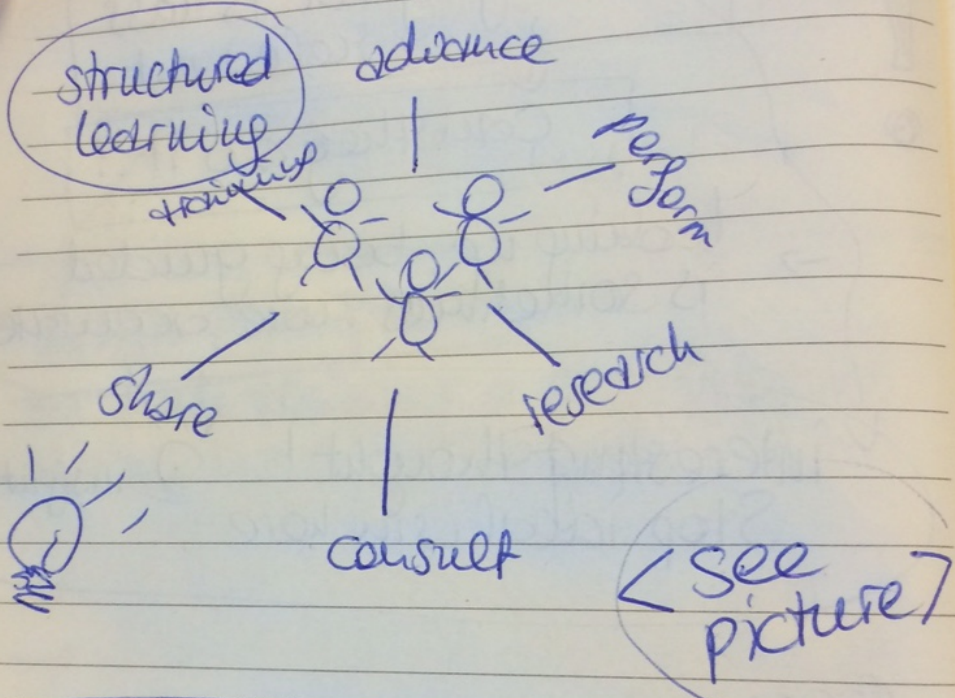 structured
learning
advance
training
perform
share
research
consult
<see
picture>